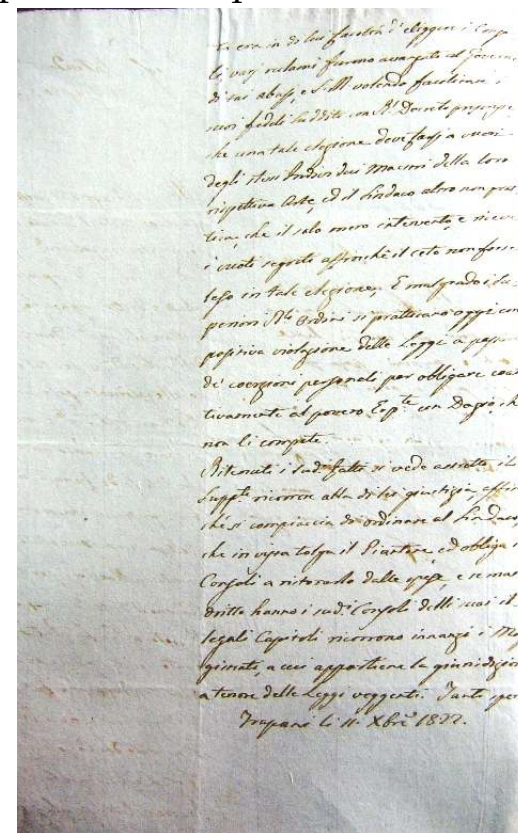 era in di lui facoltà d'eliggere i Consoli
varj reclami furono avanzati al Governo
di tai abusi, e S. M. volendo facilitare i
suoi fedeli sudditi con Rl. Decreto prescrisse,
che una tale elezione devefarsi a cuori
degli stessi Individui Maestri della loro
rispettiva Arte, ed il Sindaco altro non pra
tica, che il solo mero intervento, e riceve
i vuoti segreti affinchè il ceto non fosse
leso in tale elezione. E malgrado i Su-
periori Rli Ordini si pratticano oggi con
positiva violazione delle Leggi
de' coerzioni personali per obligare coat
tivamente al povero Espte un Dagio che
non li compete.
Ritenuti i sudi fatti si vede astretto il
Suppte ricorrere alla di lei giustizia, affin
chè si compiaccia di ordinare al Sindaco,
che in vista tolga il Piantone ed obliga i
Consoli a ritorarlo dalle spese, e se mai
dritto hanno i sudi Consoli delli suoi il-
legali Capitoli ricorrono innanzi i Ma
gistrati, a cui appartiene la giurisdizione
a tenore delle Leggi veggenti. Tanto spera
Trapani li 11. Xbre 1822.